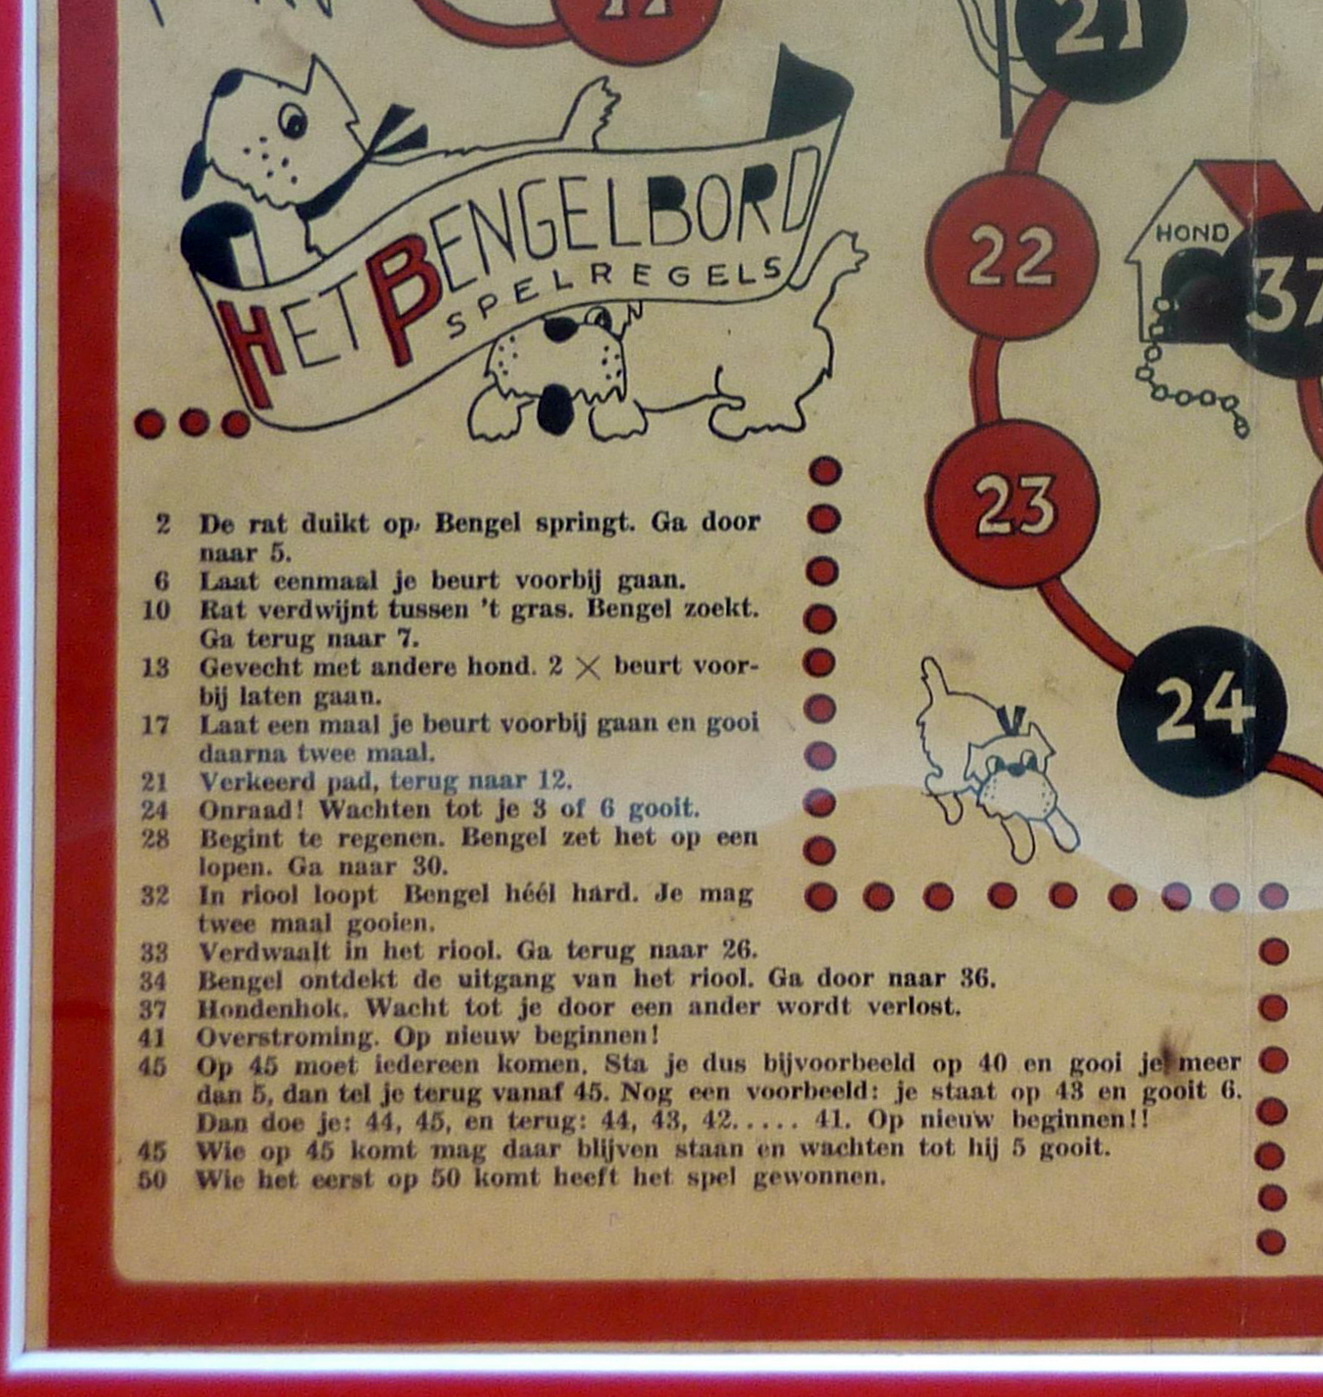 21
HET BENGELBORD
SPELREGELS
22
HOND
37
23
24
2 De rat duikt op, Bengel springt. Ga door
naar 5.
6 Laat eenmaal je beurt voorbij gaan.
10 Rat verdwijnt tussen 't gras. Bengel zoekt.
Ga terug naar 7.
13 Gevecht met andere hond. 2 × beurt voor-
bij laten gaan.
17 Laat een maal je beurt voorbij gaan en gooi
daarna twee maal.
21 Verkeerd pad, terug naar 12.
24 Onraad! Wachten tot je 3 of 6 gooit.
28 Begint te regenen. Bengel zet het op een
lopen. Ga naar 30.
32 In riool loopt Bengel héél hard. Je mag
twee maal gooien.
33 Verdwaalt in het riool. Ga terug naar 26.
34 Bengel ontdekt de uitgang van het riool. Ga door naar 36.
37 Hondenhok. Wacht tot je door een ander wordt verlost.
41 Overstroming. Op nieuw beginnen!
45 Op 45 moet iedereen komen. Sta je dus bijvoorbeeld op 40 en gooi je meer
dan 5, dan tel je terug vanaf 45. Nog een voorbeeld: je staat op 43 en gooit 6.
Dan doe je: 44, 45, en terug: 44, 43, 42..... 41. Op nieuw beginnen!!
45 Wie op 45 komt mag daar blijven staan en wachten tot hij 5 gooit.
50 Wie het eerst op 50 komt heeft het spel gewonnen.